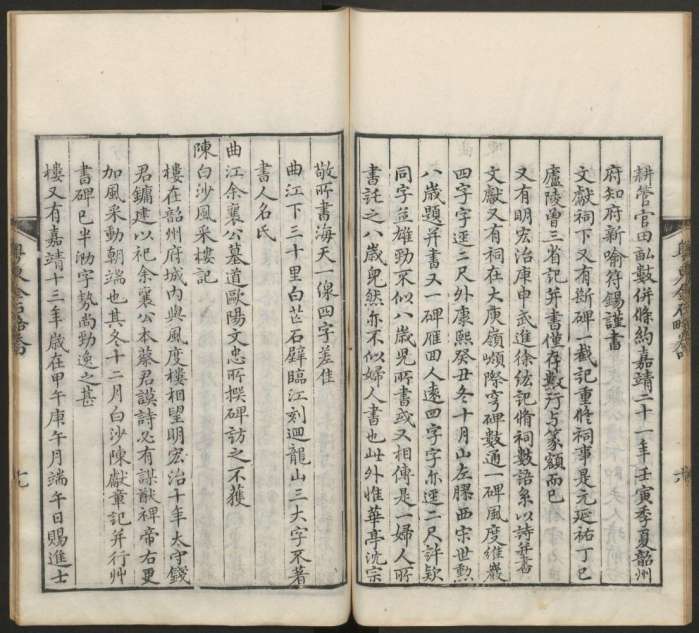 耕管官田畆數併條約嘉靖二十一年壬寅季夏韶州
府知府新喻符錫謹書
文獻祠下又有斷碑一截記重修祠事是元延祐丁巳
廬陵曾三省記并書僅存數行与篆額而已
又有明宏治庚申武進徐紘記脩祠數語系以詩并書
文獻又有祠在大庾嶺巔際穹碑數通一碑風度維巖
四字字逕二尺外康熙癸丑冬十月山左膠西宗世勲
八歲題并書又一碑雁回人遠四字字亦逕二尺許欵
同字荳雄勁不似八歲児所書或又相傳是一婦人所
書託之八歲兒然亦不似婦人書也此外惟華亭沈宗
敬所書海天一線四字差佳
曲江下三十里白芒石壁臨江刻迴龍山三大字不著
書人名氏
曲江余襄公墓道歐陽文忠所撰碑訪之不獲
陳白沙風采樓記
樓在韶州府城內與風度樓相望明宏治十年太守錢
君鏞建以祀余襄公本蔡君謨詩必有謀猷裨帝右更
加風采動朝端也其冬十二月白沙陳獻章記并行艸
書碑已半泐字勢尚勁逸之甚
樓又有嘉靖十三年歲在甲午庚午月端午日賜進士
粤東金石略卷